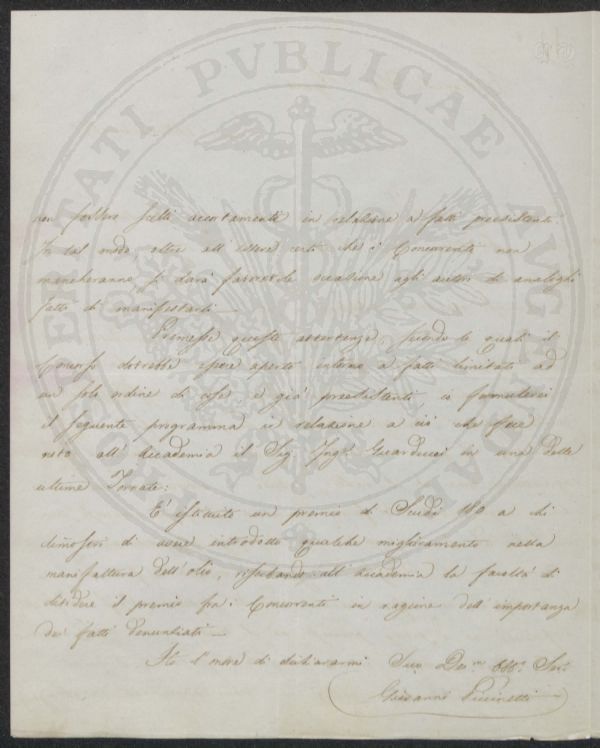 PROSPERITATI PVBLICAE AVGENDAE
non fossero scelti accortamente in relazione a fatti preesistenti.
In tal modo, oltre all'essere certi che i Concorrenti non
mancheranno, si darà favorevole occasione agli autori di analoghi
fatti di manifestarli —
Premesse queste avvertenze, secondo le quali il
Concorso dovrebbe essere aperto intorno a fatti limitati ad
un solo ordine di cose, e già preesistenti, io formulerei
il seguente programma in relazione a ciò che fece
noto all'Accademia il Sig. Ing.e Guarducci in una delle
ultime Tornate:
È istituito un premio di Scudi 180 a chi
dimostri di avere introdotto qualche miglioramento nella
manifattura dell'olio, riserbando all'Accademia la facoltà di
dividere il premio fra i Concorrenti in ragione dell'importanza
dei fatti denunziati —
Ho l'onore di dichiararmi Suo Dev.mo Obb.o Ser.e
Giovanni